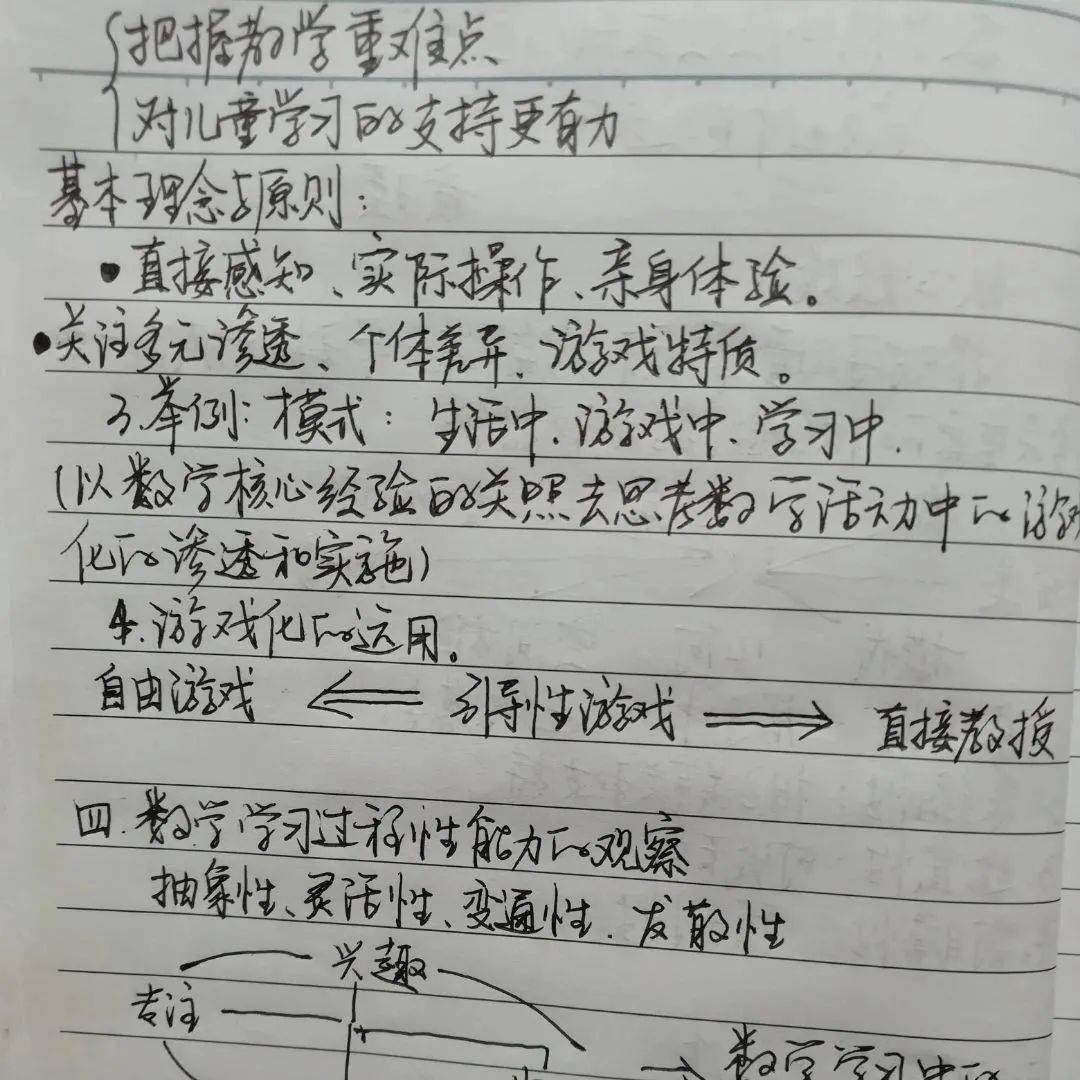 把握教学重难点
对儿童学习的支持更有力
基本理念与原则：
• 直接感知、实际操作、亲身体验。
• 关注多元渗透、个体差异、游戏特质。
3.举例：模式：生活中、游戏中、学习中.
(以数学核心经验的关照去思考数学活动中的游戏
化的渗透和实施)
4.游戏化的运用。
自由游戏 ⇐ 引导性游戏 ⇒ 直接教授
四.数学学习过程性能力的观察
抽象性、灵活性、变通性、发散性
兴趣
专注
→ 数学学习中的